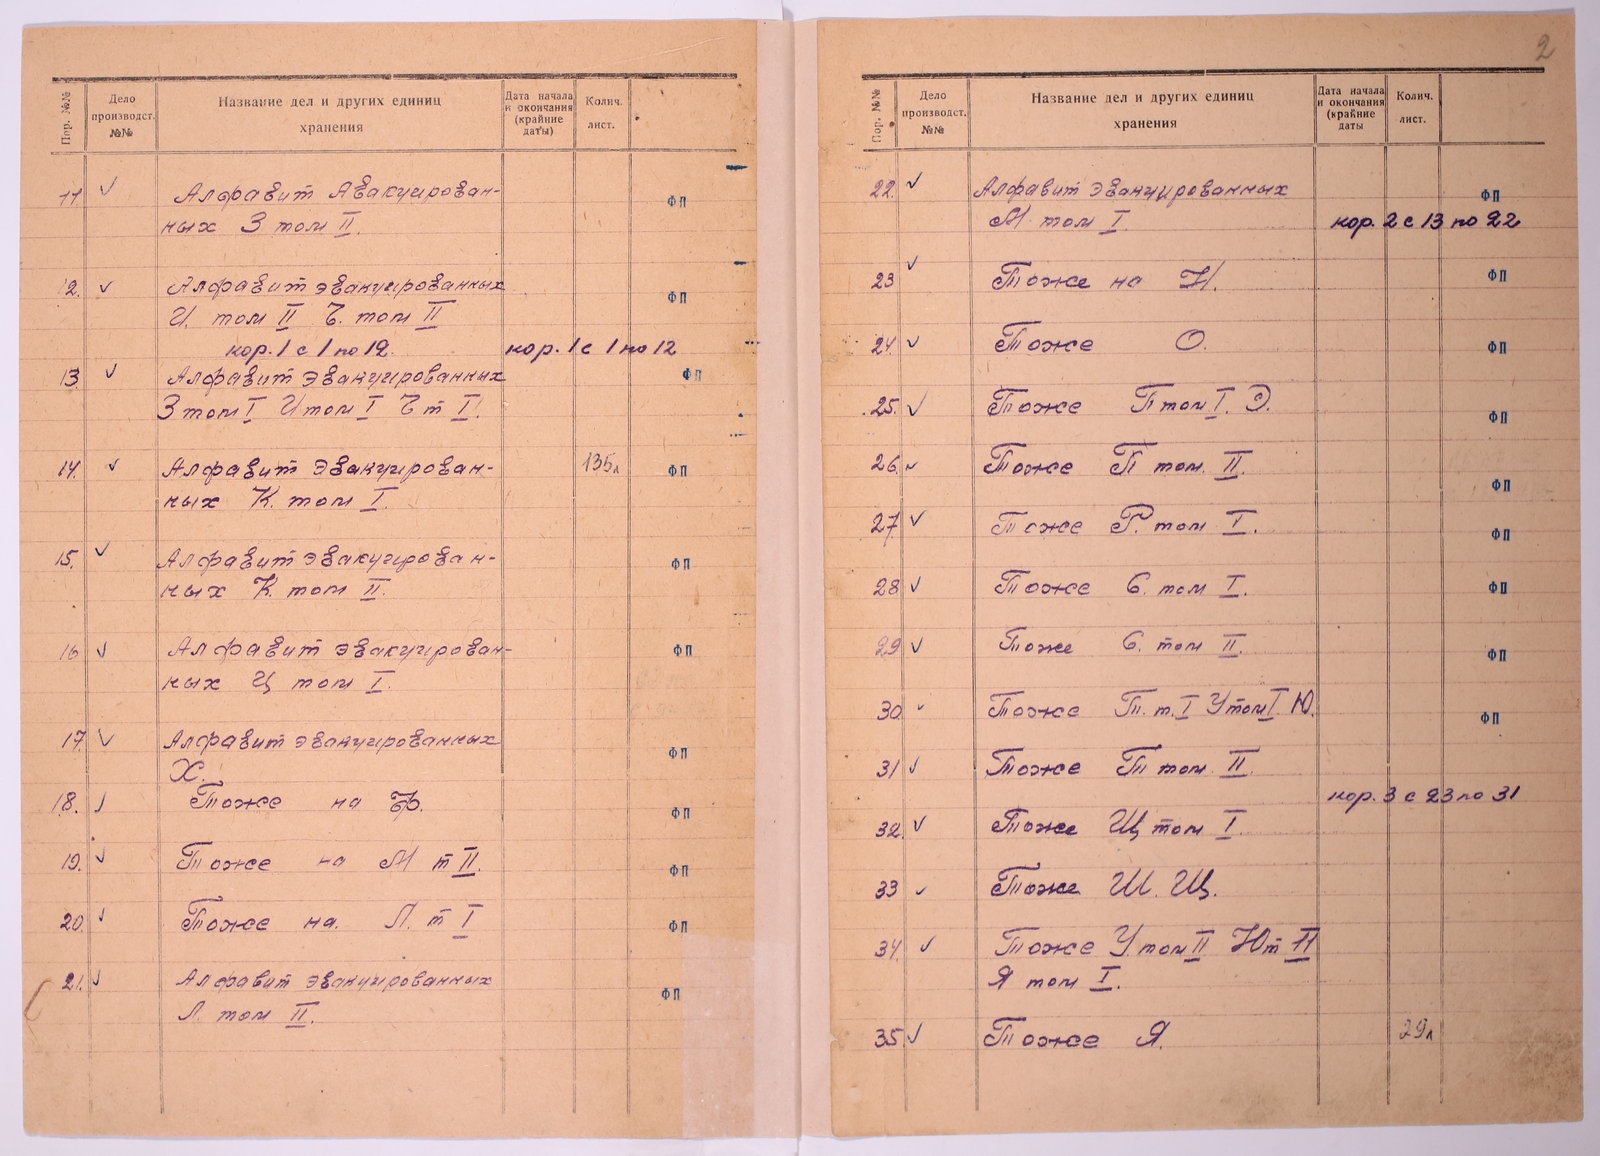 Пор. №№
Дело производст. №№
Название дел и других единиц хранения
Дата начала и окончания (крайние даты)
Колич. лист.
11. ✓ Алфавит Авакуирован- ФП
ных З том II.
12. ✓ Алфавит эвакуированных ФП
И. том II Б. том II
кор. 1 с 1 по 12. кор. 1 с 1 по 12
13 ✓ Алфавит эвакуированных ФП
З том I И том I Б т I.
14. ✓ Алфавит эвакуирован- 135л ФП
ных К. том I.
15. ✓ Алфавит эвакуирован- ФП
ных К. том II.
16 ✓ Алфавит эвакуирован- ФП
ных Ц том I.
17. ✓ Алфавит эвакуированных ФП
Х.
18. ✓ Тоже на Ф. ФП
19. ✓ Тоже на М т II. ФП
20. ✓ Тоже на. Л. т I ФП
21. ✓ Алфавит эвакуированных ФП
Л. том II.
2
Пор. №№
Дело производст. №№
Название дел и других единиц хранения
Дата начала и окончания (крайние даты
Колич. лист.
22. ✓ Алфавит эвакуированных ФП
М. том I. кор. 2 с 13 по 22
23 ✓ Тоже на Н. ФП
24. ✓ Тоже О. ФП
25. ✓ Тоже П том I. Э. ФП
26. ✓ Тоже П том. II. ФП
27 ✓ Тоже Р. том I. ФП
28 ✓ Тоже С. том I. ФП
29 ✓ Тоже С. том II. ФП
30. ✓ Тоже Т. т. I У том I. Ю. ФП
31 ✓ Тоже Т том. II.
кор. 3 с 23 по 31
32. ✓ Тоже Щ том I.
33 ✓ Тоже Ш. Щ.
34. ✓ Тоже У том II Ю т II
Я том I.
35 ✓ Тоже Я. 29л